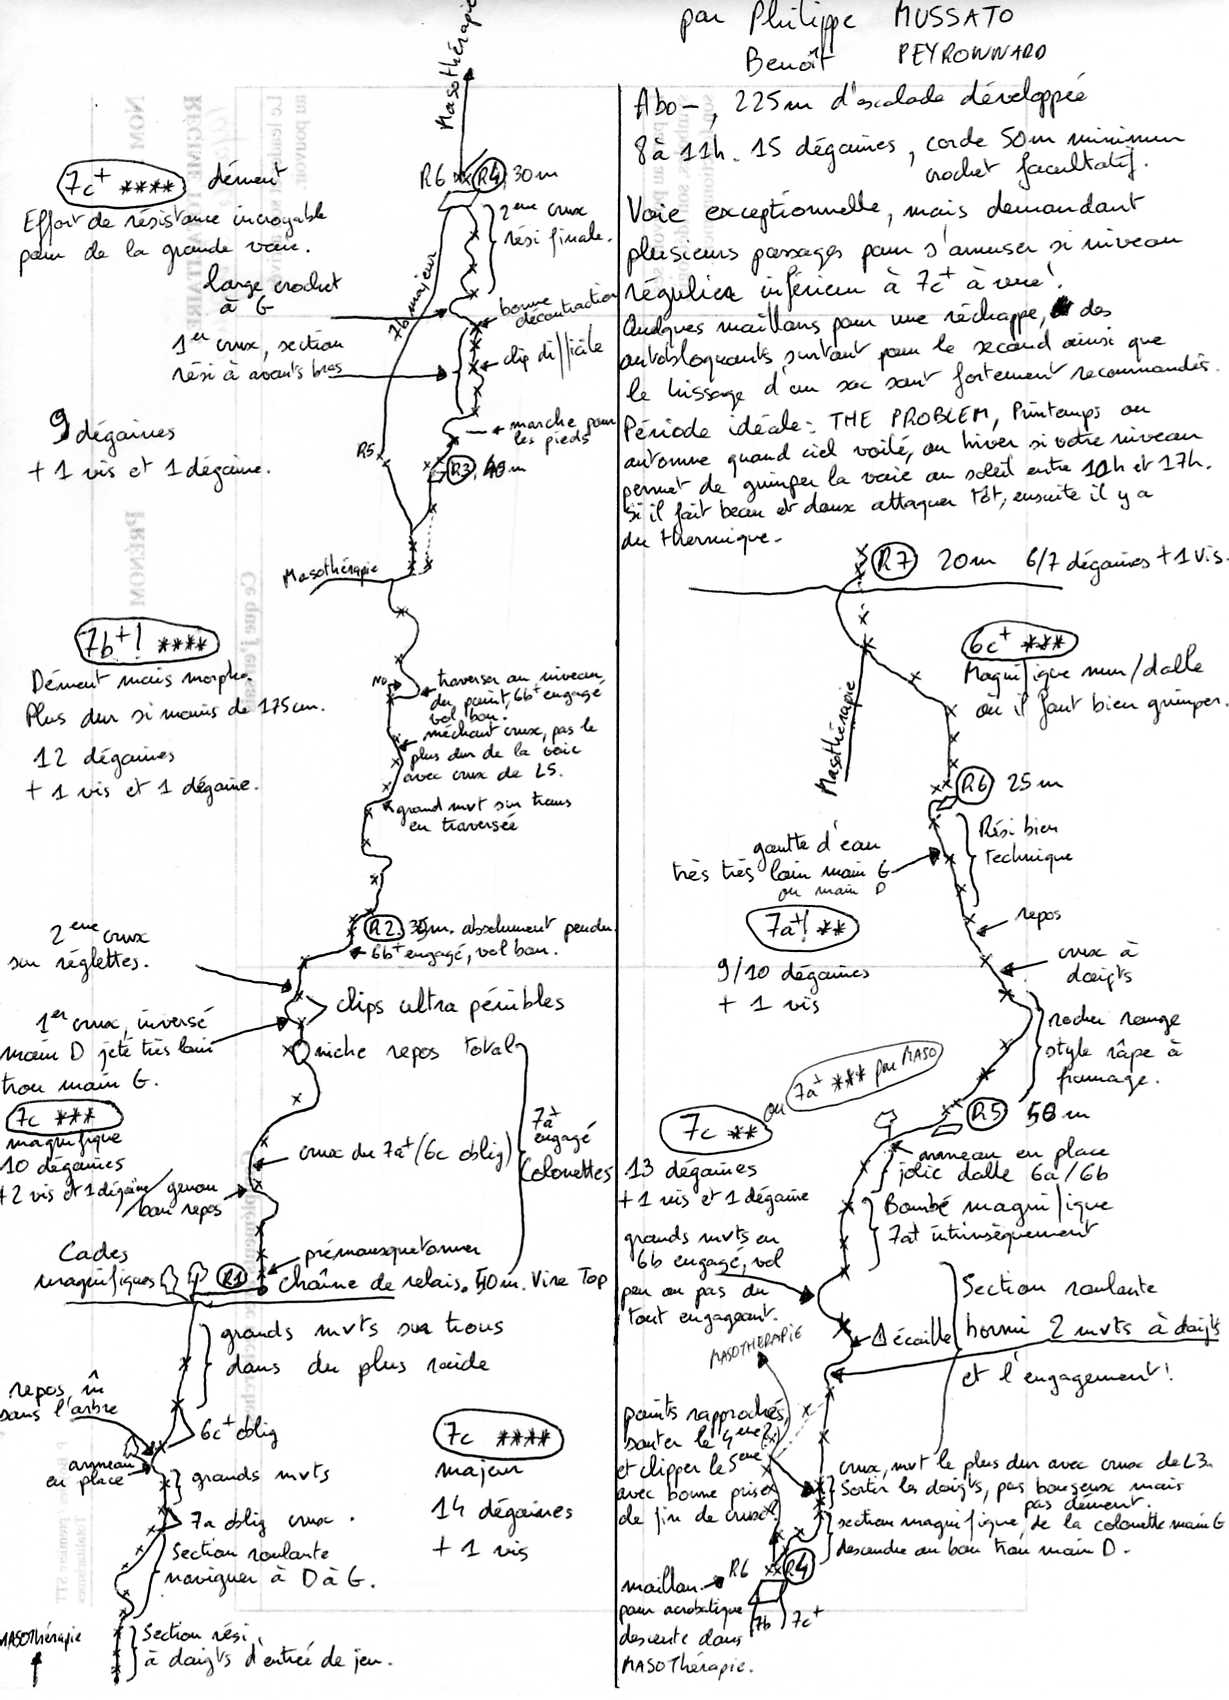 par Philippe MUSSATO
Benoît PEYRONNARD
Abo-, 225m d'escalade développée
8 à 11h. 15 dégaines, corde 50m minimum
crochet facultatif.
Voie exceptionnelle, mais demandant
plusieurs passages pour s'amuser si niveau
régulier inférieur à 7c+ à vue!
Quelques maillons pour une réchappe, des
autobloquants surtout pour le second ainsi que
le hissage d'un sac sont fortement recommandés.
Période idéale: THE PROBLEM, Printemps ou
automne quand ciel voilé, ou hiver si votre niveau
permet de grimper la voie au soleil entre 10h et 17h.
Si il fait beau et doux attaquer tôt, ensuite il y a
du thermique.
Masothérapie
R6 R4 30m
7c+ **** dément
Effort de résistance incroyable
pour de la grande voie.
2ème crux
rési finale.
large crochet
à G
7b majeur
bonne
décontraction
1er crux, section
rési à avants bras
clip difficile
marche pour
les pieds
9 dégaines
+ 1 vis et 1 dégaine.
R5
R3 40m
Masothérapie
7b+! ****
Dément mais morpho.
Plus dur si moins de 175cm.
12 dégaines
+ 1 vis et 1 dégaine.
NO
traverser au niveau
du point, 6b+ engagé
vol bon.
méchant crux, pas le
plus dur de la voie
avec crux de L5.
grand mvt sur trous
en traversée
R2 35m. absolument pendu.
6b+ engagé, vol bon.
2ème crux
sur réglettes.
clips ultra pénibles
1er crux, inversé
main D jeté très loin
trou main G.
niche repos total
7c ***
magnifique
10 dégaines
+2 vis et 1 dégaine
genou
bon repos
crux du 7a+ (6c oblig)
7a+
engagé
Colonettes
prémousquetonner
chaîne de relais. 50m. Vire Top
Cades
magnifiques
R1
grands mvts sur trous
dans du plus raide
repos
dans l'arbre
6c+ oblig
anneau
en place
grands mvts
7a oblig crux.
Section roulante
naviguer à D à G.
Section rési,
à doigts d'entrée de jeu.
MASOthérapie
7c ****
majeur
14 dégaines
+ 1 vis
R7 20m 6/7 dégaines + 1 vis.
6c+ ***
Magnifique mur/dalle
où il faut bien grimper.
Masothérapie
R6 25m
Rési bien
technique
goutte d'eau
très très loin main G
ou main D
7a+! **
9/10 dégaines
+ 1 vis
repos
crux à
doigts
rocher rouge
style râpe à
fromage.
R5 50m
7c **
ou 7a+ *** par MASO
13 dégaines
+ 1 vis et 1 dégaine
anneau en place
jolie dalle 6a/6b
Bombé magnifique
7a+ intrinsèquement
grands mvts en
6b engagé, vol
peu ou pas du
tout engageant.
MASOTHERAPIE
écaille
Section roulante
hormi 2 mvts à doigts
et l'engagement!
points rapprochés,
sauter le 4ème (2x)
et clipper le 5ème
avec bonne prise
de fin de crux
crux, mvt le plus dur avec crux de L3.
Sortir les doigts, pas bouseux mais
pas dément.
section magnifique, de la colonette main G
descendre au bon trou main D.
R6 R4
maillon
pour acrobatique
descente dans
MASOThérapie.
7b 7c+